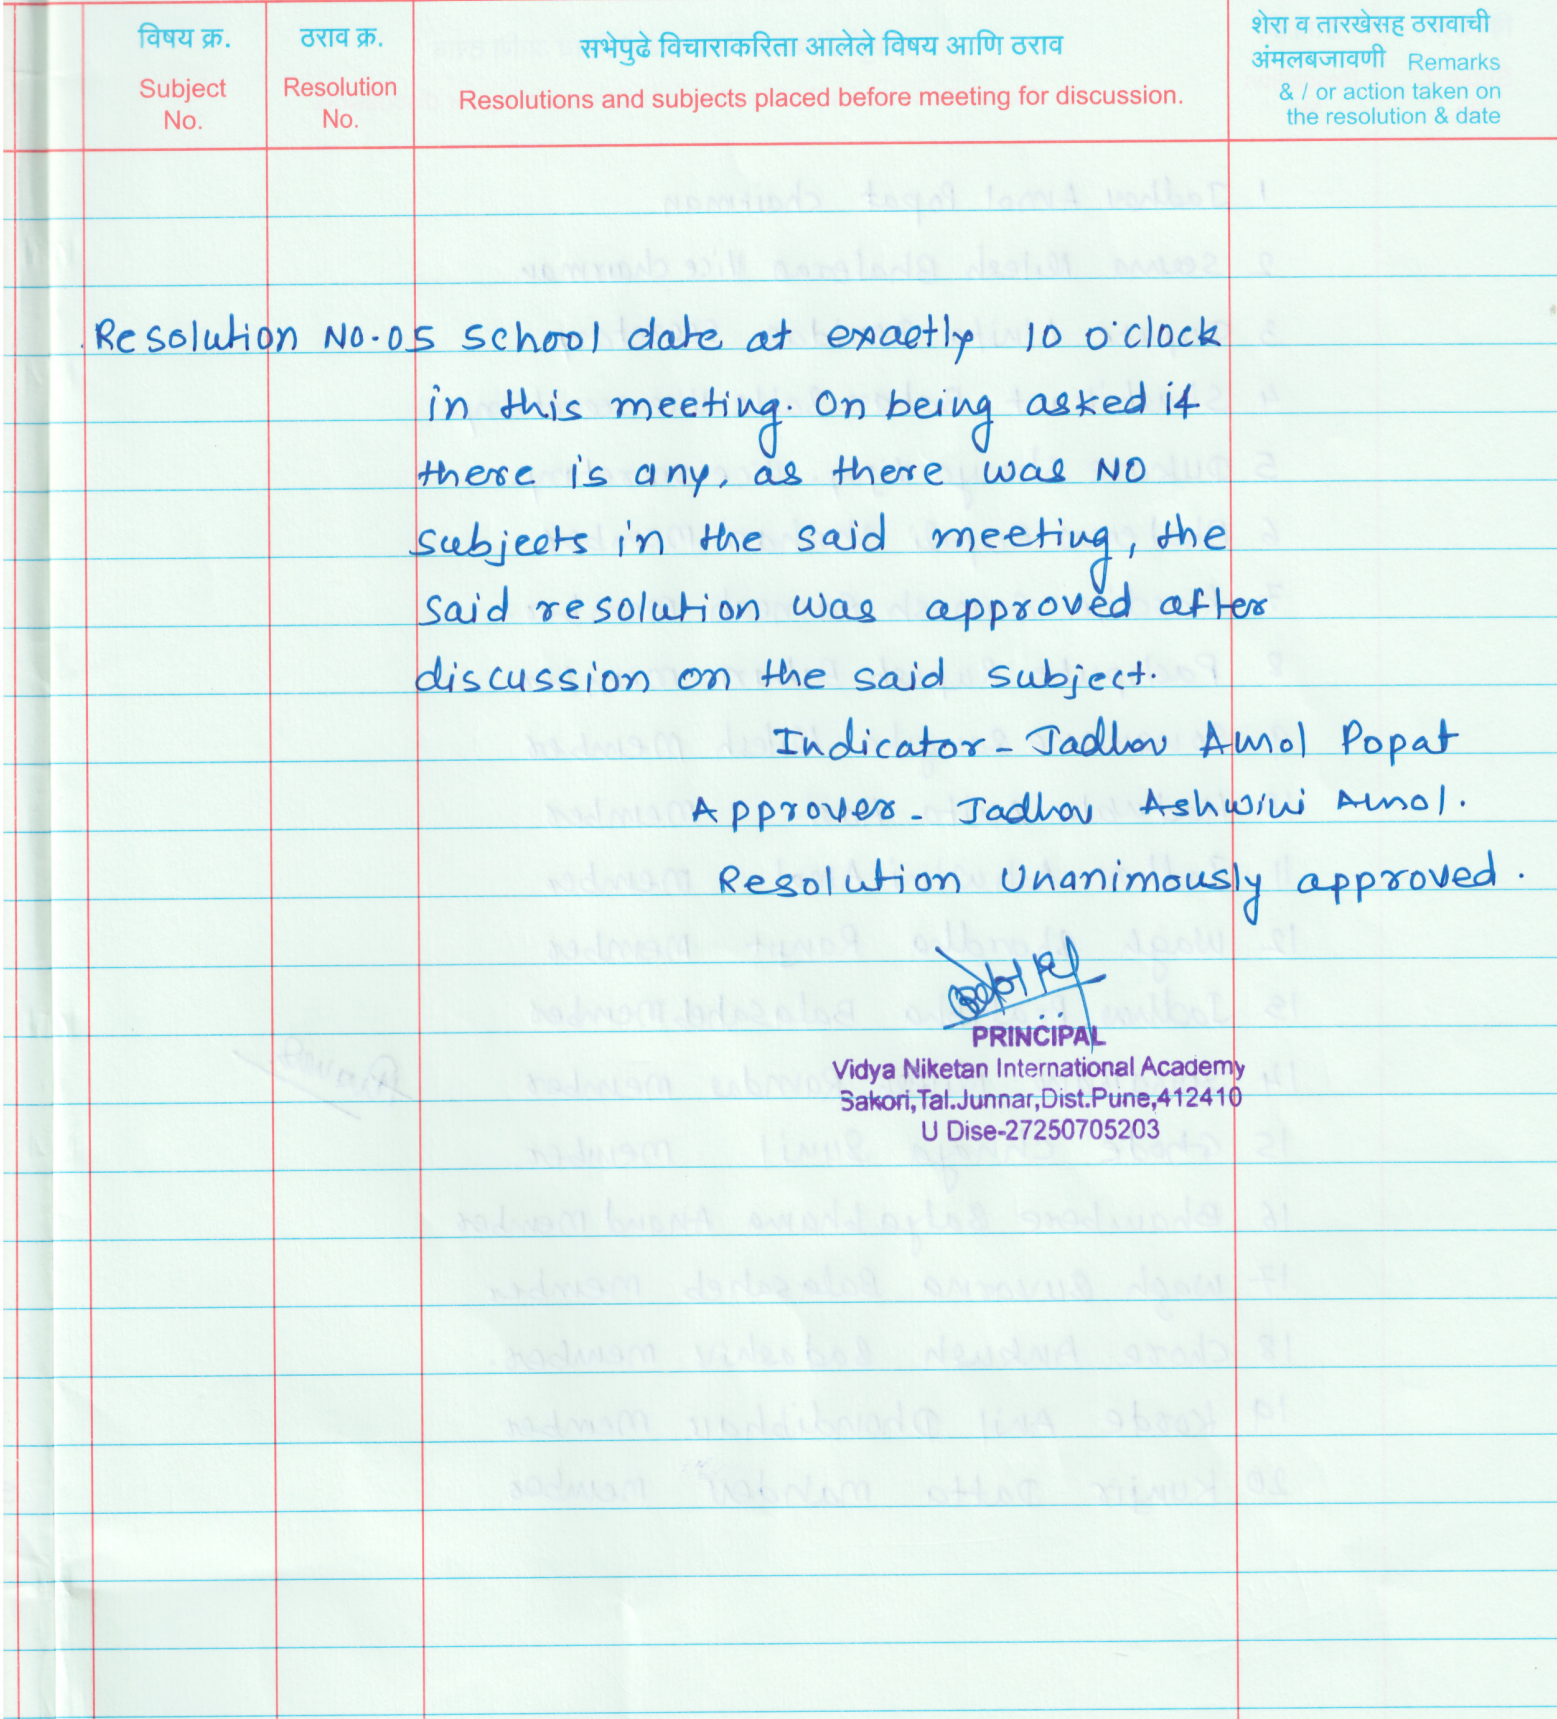 विषय क्र.
Subject
No.
ठराव क्र.
Resolution
No.
सभेपुढे विचाराकरिता आलेले विषय आणि ठराव
Resolutions and subjects placed before meeting for discussion.
शेरा व तारखेसह ठरावाची
अंमलबजावणी Remarks
& / or action taken on
the resolution & date
Resolution No.05 School date at exactly 10 o'clock
in this meeting. On being asked if
there is any, as there was NO
subjects in the said meeting, the
said resolution was approved after
discussion on the said subject.
Indicator - Jadhav Amol Popat
Approver - Jadhav Ashwini Amol.
Resolution Unanimously approved.
PRINCIPAL
Vidya Niketan International Academy
Sakori,Tal.Junnar,Dist.Pune,412410
U Dise-27250705203